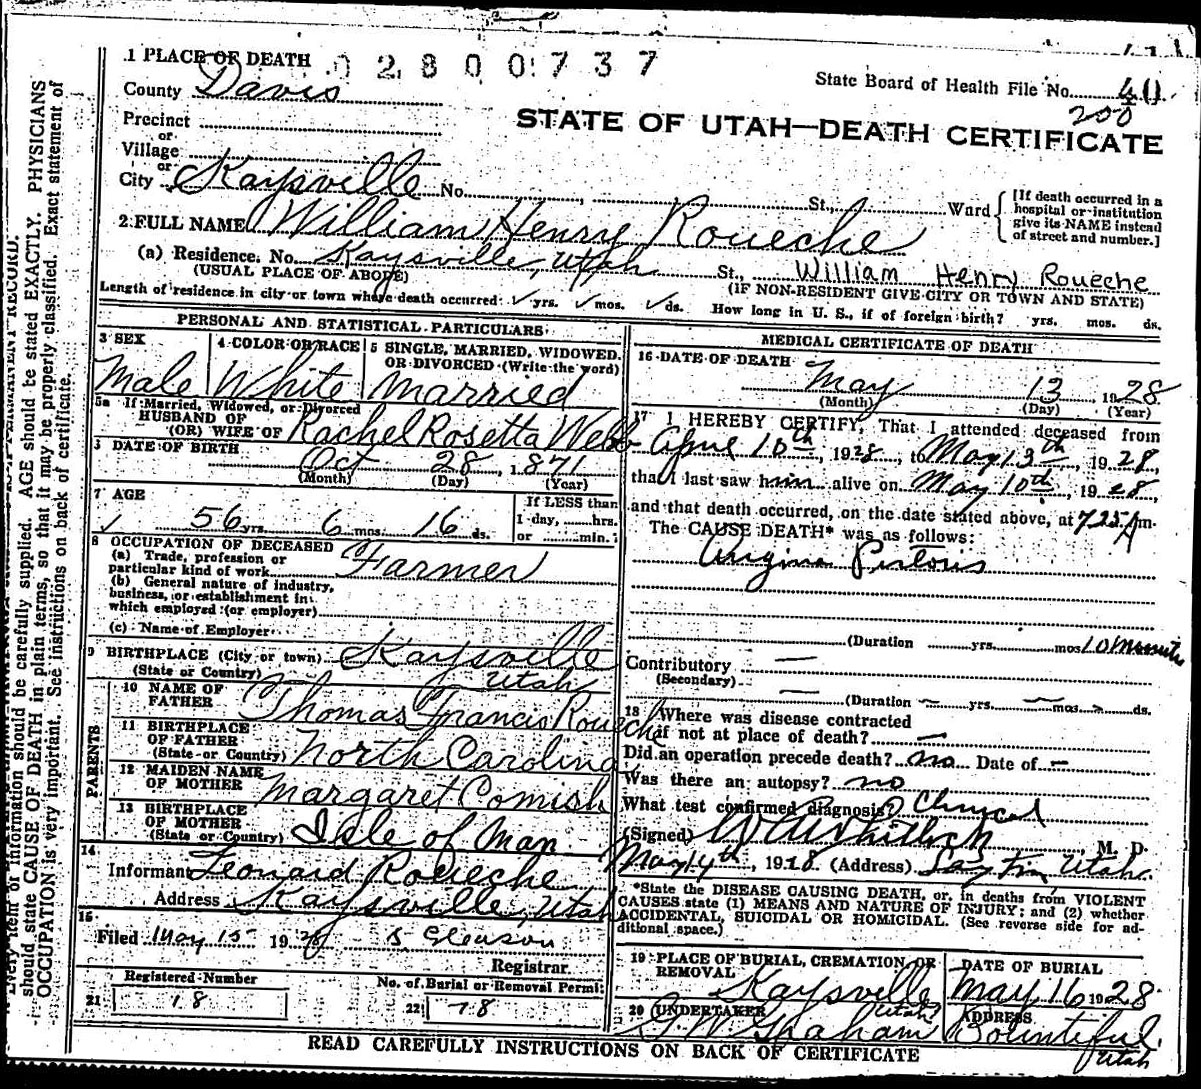 1 PLACE OF DEATH
02800737
State Board of Health File No. 40
200
County Davis
STATE OF UTAH—DEATH CERTIFICATE
Precinct
or
Village
or
City Kaysville No. , St., Ward
[If death occurred in a hospital or institution give its NAME instead of street and number.]
2 FULL NAME William Henry Roueche
(a) Residence. No. Kaysville, Utah St., William Henry Roueche
(USUAL PLACE OF ABODE) (IF NON-RESIDENT GIVE CITY OR TOWN AND STATE)
Length of residence in city or town where death occurred ✓ yrs. ✓ mos. ✓ ds. How long in U. S., if of foreign birth? yrs. mos. ds.
PERSONAL AND STATISTICAL PARTICULARS
3 SEX
Male
4 COLOR OR RACE
White
5 SINGLE, MARRIED, WIDOWED, OR DIVORCED (Write the word)
Married
5a If Married, Widowed, or Divorced
HUSBAND OF
(OR) WIFE OF Rachel Rosetta Webb
DATE OF BIRTH
Oct 28, 1871
(Month) (Day) (Year)
7 AGE
56 yrs. 6 mos. 16 ds.
If LESS than
1 day, hrs.
or min.
8 OCCUPATION OF DECEASED
(a) Trade, profession or
particular kind of work Farmer
(b) General nature of industry,
business, or establishment in
which employed (or employer)
(c) Name of Employer
9 BIRTHPLACE (City or town) Kaysville
(State or Country) Utah
PARENTS
10 NAME OF
FATHER Thomas Francis Roueche
11 BIRTHPLACE
OF FATHER
(State or Country) North Carolina
12 MAIDEN NAME
OF MOTHER Margaret Comish
13 BIRTHPLACE
OF MOTHER
(State or Country) Isle of Man
14
Informant Leonard Roueche
Address Kaysville, Utah
15
Filed May 15 1928 S Gleason
Registrar.
Registered Number
21 18
No. of Burial or Removal Permit
22 78
MEDICAL CERTIFICATE OF DEATH
16 DATE OF DEATH
May 13, 1928
(Month) (Day) (Year)
17 I HEREBY CERTIFY, That I attended deceased from
April 10th, 1928, to May 13th, 1928,
that I last saw him alive on May 10th, 1928,
and that death occurred, on the date stated above, at 725 A m.
The CAUSE DEATH* was as follows:
Angina Pectoris
(Duration yrs. mos. 10 Minutes
Contributory —
(Secondary)
— (Duration — yrs. — mos. — ds.
18 Where was disease contracted
if not at place of death? —
Did an operation precede death? no Date of —
Was there an autopsy? no
What test confirmed diagnosis? Clinical
(Signed) W A Whitlock, M. D.
May 14th, 1928 (Address) Layton, Utah.
*State the DISEASE CAUSING DEATH, or, in deaths from VIOLENT
CAUSES state (1) MEANS AND NATURE OF INJURY; and (2) whether
ACCIDENTAL, SUICIDAL OR HOMICIDAL. (See reverse side for ad-
ditional space.)
19 PLACE OF BURIAL, CREMATION, OR
REMOVAL
Kaysville
Utah
DATE OF BURIAL
May 16 1928
20 UNDERTAKER
G. W. Graham
ADDRESS
Bountiful,
Utah
READ CAREFULLY INSTRUCTIONS ON BACK OF CERTIFICATE
Every item of information should be carefully supplied. AGE should be stated EXACTLY. PHYSICIANS
should state CAUSE OF DEATH in plain terms, so that it may be properly classified. Exact statement of
OCCUPATION is very important. See instructions on back of certificate.